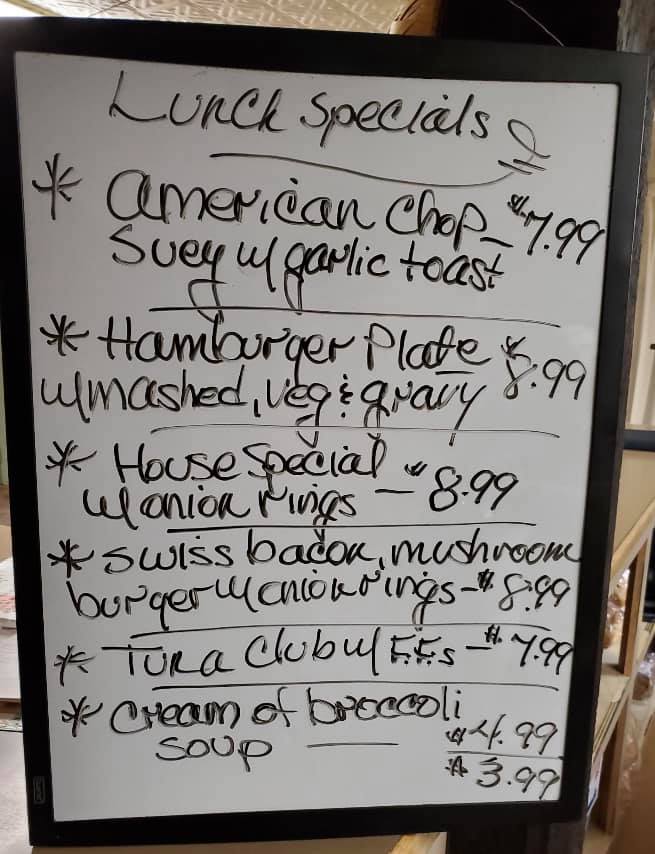 Lunch Specials
* American Chop - $7.99
Suey w/ garlic toast
* Hamburger Plate $8.99
w/mashed, veg & gravy
* House Special
w/ onion rings - $8.99
* Swiss bacon, mushroom
burger w/ onion rings - $8.99
* Tuna Club w/ F.F.s - $7.99
* Cream of broccoli
soup — $4.99
$3.99